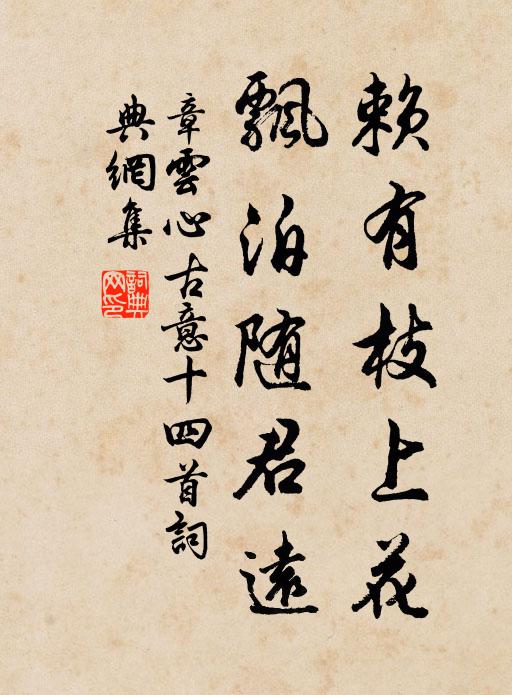 賴有枝上花
飄泊随君遠
章雲心古意十四首詞
典網集
詞典
网印